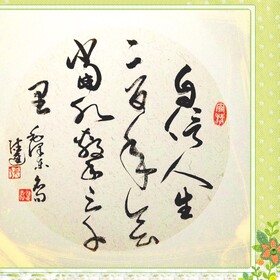 自信人生
二百年会
当水击三千
里
毛泽东句